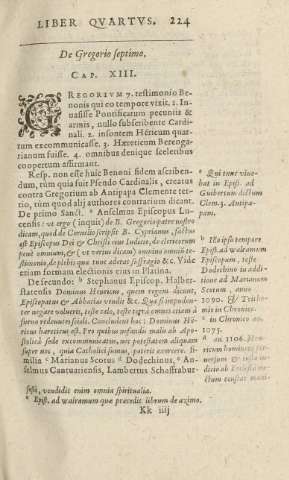 LIBER QVARTVS. 224
De Gregorio septimo.
CAP. XIII.
GREGORIVM 7. testimonio Be-
nonis qui eo tempore vixit. 1. In-
uasisse Pontificatum pecuniis &
armis, nullo subscribente Cardi-
nali. 2. insontem Hēricum quar-
tum excommunicasse. 3. Hæreticum Berenga-
rianum fuisse. 4. omnibus denique sceleribus
coopertum affirmant.
Resp. non esse huic Benoni fidem ascriben-
dum, tùm quia fuit Pseudo Cardinalis, creatus
contra Gregorium ab Antipapa Clemente ter-
tio, tùm quod alij authores contrarium dicant.
De primo Sanct. ᵇ Anselmus Episcopus Lu-
censis: vt ergo (inquit) de B. Gregorio patre nostro
dicam, quod de Cornelio scripsit B. Cyprianus, factus
est Episcopus Dei & Christi eius Iudicio, de clericorum
penè omnium, & (vt verius dicam) omnium omninò te-
stimonio, de plebis quæ tunc aderat suffragio &c. Vide
etiam formam electionis eius in Platina.
De secundo: ᵇ Stephanus Episcop. Halber-
stadensis Dominus Henricus, quem regem dicunt,
Episcopatus & Abbatias vendit &c. Qua si impuden-
ter negare voluerit, teste celo, teste terra omnes etiam à
furno redeuntes scioli. Concludent hoc: Dominus Hē-
ricus hæreticus est. Pro quibus nefandis malis ab Apo-
stolica sede excommunicatus, nec potestatem aliquam
super nos, quia Catholici sumus, poterit exercere. Si-
milia ᶜ Marianus Scotus ᵈ Dodechinus, ᵉ An-
selmus Cantuariensis, Lambertus Schaffnabur-
ᵃ Qui tunc viue-
bat in Epist. ad
Guibertum dictum
Clem. 3. Antipa-
pam.
ᵇ Illo ipso tempore
Epist. ad walramum
Episcopum, teste
Dodechino in addi-
tione ad Marianum
Scotum, anno
1090. & Trithe-
mio in Chronico.
ᶜ in Chronico an.
1075.
ᵈ an 1106. Hen-
ricum
ab Ecclesia
gensis, vendidit enim omnia spiritualia.
ᵉ Epist. ad walramum quæ præcedit librum de azimo.
Kk iiij